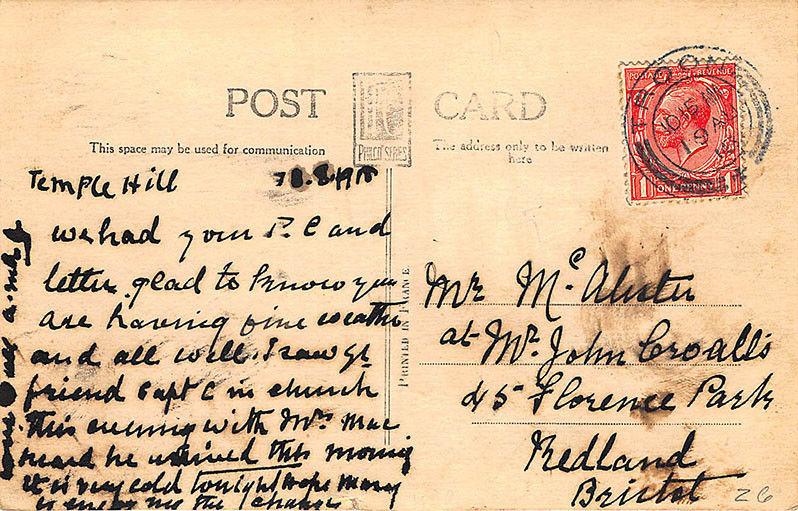 POST
CARD
PHILCO SERIES
This space may be used for communication
The address only to be written
here
POSTAGE REVENUE
1 ONE PENNY 1
TROON
10 15
19 A
PRINTED IN FRANCE
Temple Hill
we had your P.C and
letter glad to know you
are having fine weather
and all well. I saw yr
friend Capt C in church
this evening with Mrs Mac
heard he arrived this morning
it is very cold tonight hope Mary
is enjoying the change
Mr McAlister
at Mr John Croall's
45 Florence Park
Redland
Bristol
26